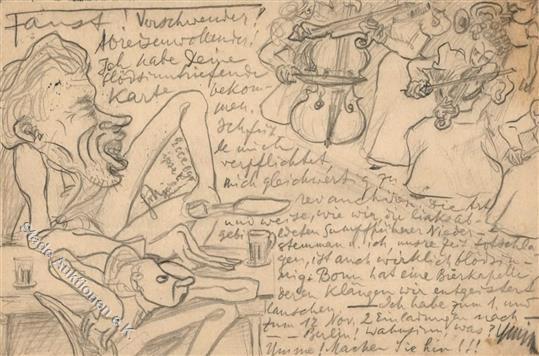 Faust! Verschwender!
Abreisenwollender!
Ich habe Deine
blödsinntriefende
Karte bekom
men.
Ich
de mich
verpflichtet,
mich gleichwertig zu
revanchieren. Die Art
und weise, wie wir, die
Nieder-
u. ich, unsre Zeit totschla
gen, ist auch wirklich blödsin-
nig! Bonn hat eine Bierkapelle
deren Klängen wir entgeistert
lauschen. — Ich habe zum 1. und
zum 12 Nov. 2 Einladungen nach
— Berlin! Wahnsinn was?
Machen Sie hin!!!
Stade Auktionen e.K.